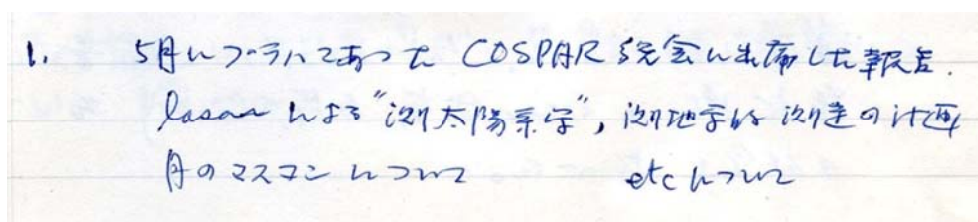 1. 5月にプラハであった COSPAR 総会に出席した報告.
laser による"測太陽系学", 測地学的 測定の計画
月のマスコンについて etc について